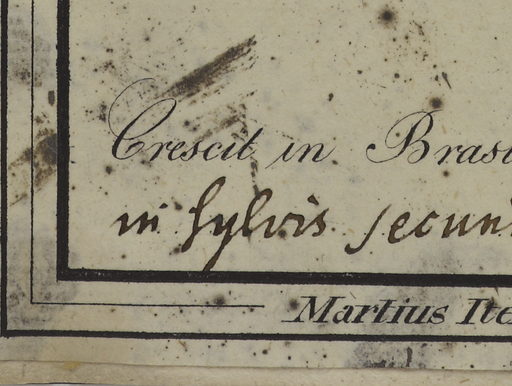 Crescit in Brasi
in sylvis secun
Martius Ite